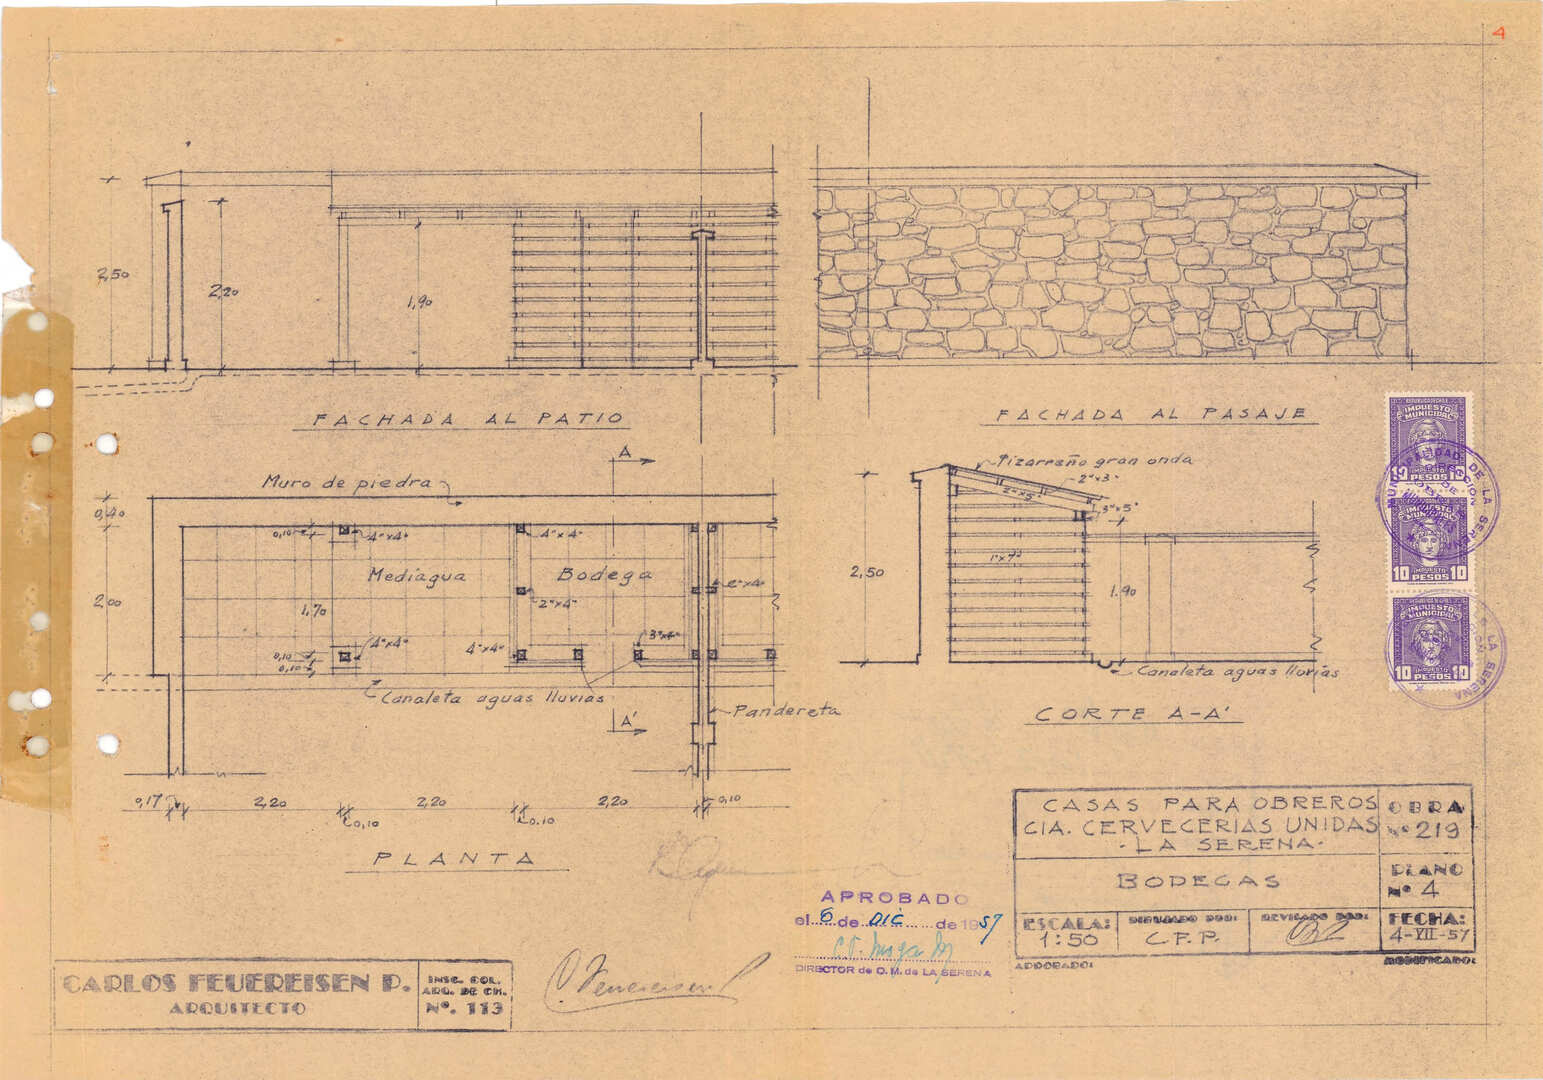 4
2,50
2,20
1,90
FACHADA AL PATIO
FACHADA AL PASAJE
A
Muro de piedra
0,40
0,10
4"x4"
4"x4"
Mediagua
Bodega
2"x4"
2,00
1,70
2"x4"
3"x4"
4"x4"
4"x4"
0,10
0,10
Canaleta aguas lluvias
A'
Pandereta
0,17
2,20
2,20
2,20
0,10
0,10
0.10
PLANTA
Pizarreño gran onda
2"x3"
2"x5"
3"x5"
1"x4"
2,50
1.90
Canaleta aguas lluvias
CORTE A-A'
REPUBLICA DE CHILE
IMPUESTO
MUNICIPAL
10 10
PESOS
IMPUESTO
10 PESOS 10
IMPUESTO
MUNICIPAL
10 10
PESOS
MUNICIPALIDAD DE LA SERENA
LA SERENA
CASAS PARA OBREROS
CIA. CERVECERIAS UNIDAS
-LA SERENA-
OBRA
Nº 219
BODEGAS
PLANO
Nº 4
ESCALA:
1:50
DIBUJADO POR:
C.F.P.
REVISADO POR:
FECHA:
4-XII-57
APROBADO:
MODIFICADO:
APROBADO
el 6 de DIC de 1957
DIRECTOR de O.M. de LA SERENA
CARLOS FEUEREISEN P.
ARQUITECTO
INSC. COL.
ARQ. DE CH.
Nº. 113
C. Feuereisen